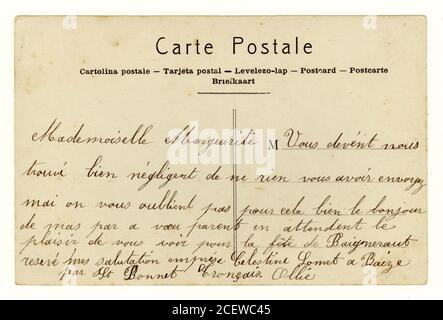 Carte Postale
Cartolina postale — Tarjeta postal — Levelezo-lap — Postcard — Postcarte
Briefkaart
Mademoiselle Margurite M Vous devént nous
trouvé bien négligent de ne rien vous avoir envoyez
mai on vous oublient pas pour cela bien le bonjour
de mas par a vœu parent en attendent le
plaisir de vous voir pour la féte de Baigneraut
reseré mes salutation emprise Celestine Lomet a Baize
par St Bonnet Tronçais Ollié
alamy
alamy
Image ID: 2CEWC45
www.alamy.com